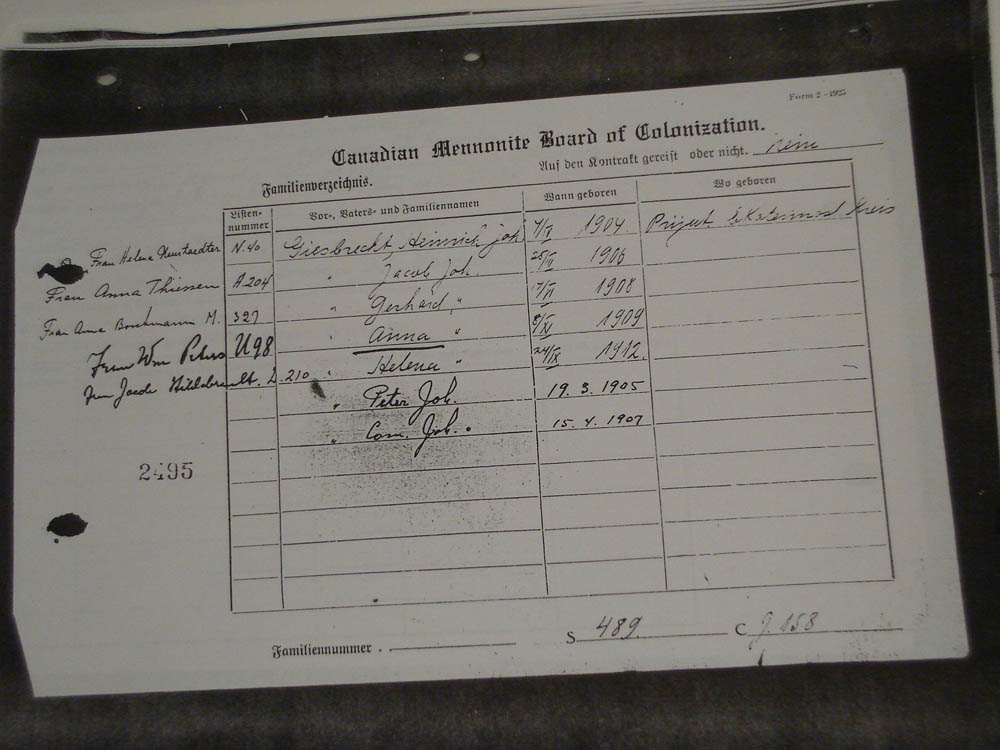 Form 2 - 1925
Canadian Mennonite Board of Colonization.
Auf den Kontrakt gereist oder nicht.
Familienverzeichnis.
Listen-nummer Vor-, Vaters- und Familiennamen Wann geboren Wo geboren
Frau Helena Neustaedter N.40 Giesbrecht, Heinrich Joh. 1904. Kreis
Frau Anna Thiessen A.204 " Jacob Joh. 1906
Frau Anna Borchmann M. 327 " Gerhard " 1908
Frau Wm Peters U98 " Anna " 1909
Frau Jacob Hildebrandt. L.210 " Helena " 24/IX 1912.
" Peter Joh. 19. 3. 1905
" Corn. Joh. 15. 4. 1907
2495
Familiennummer. S 489 C J. 158